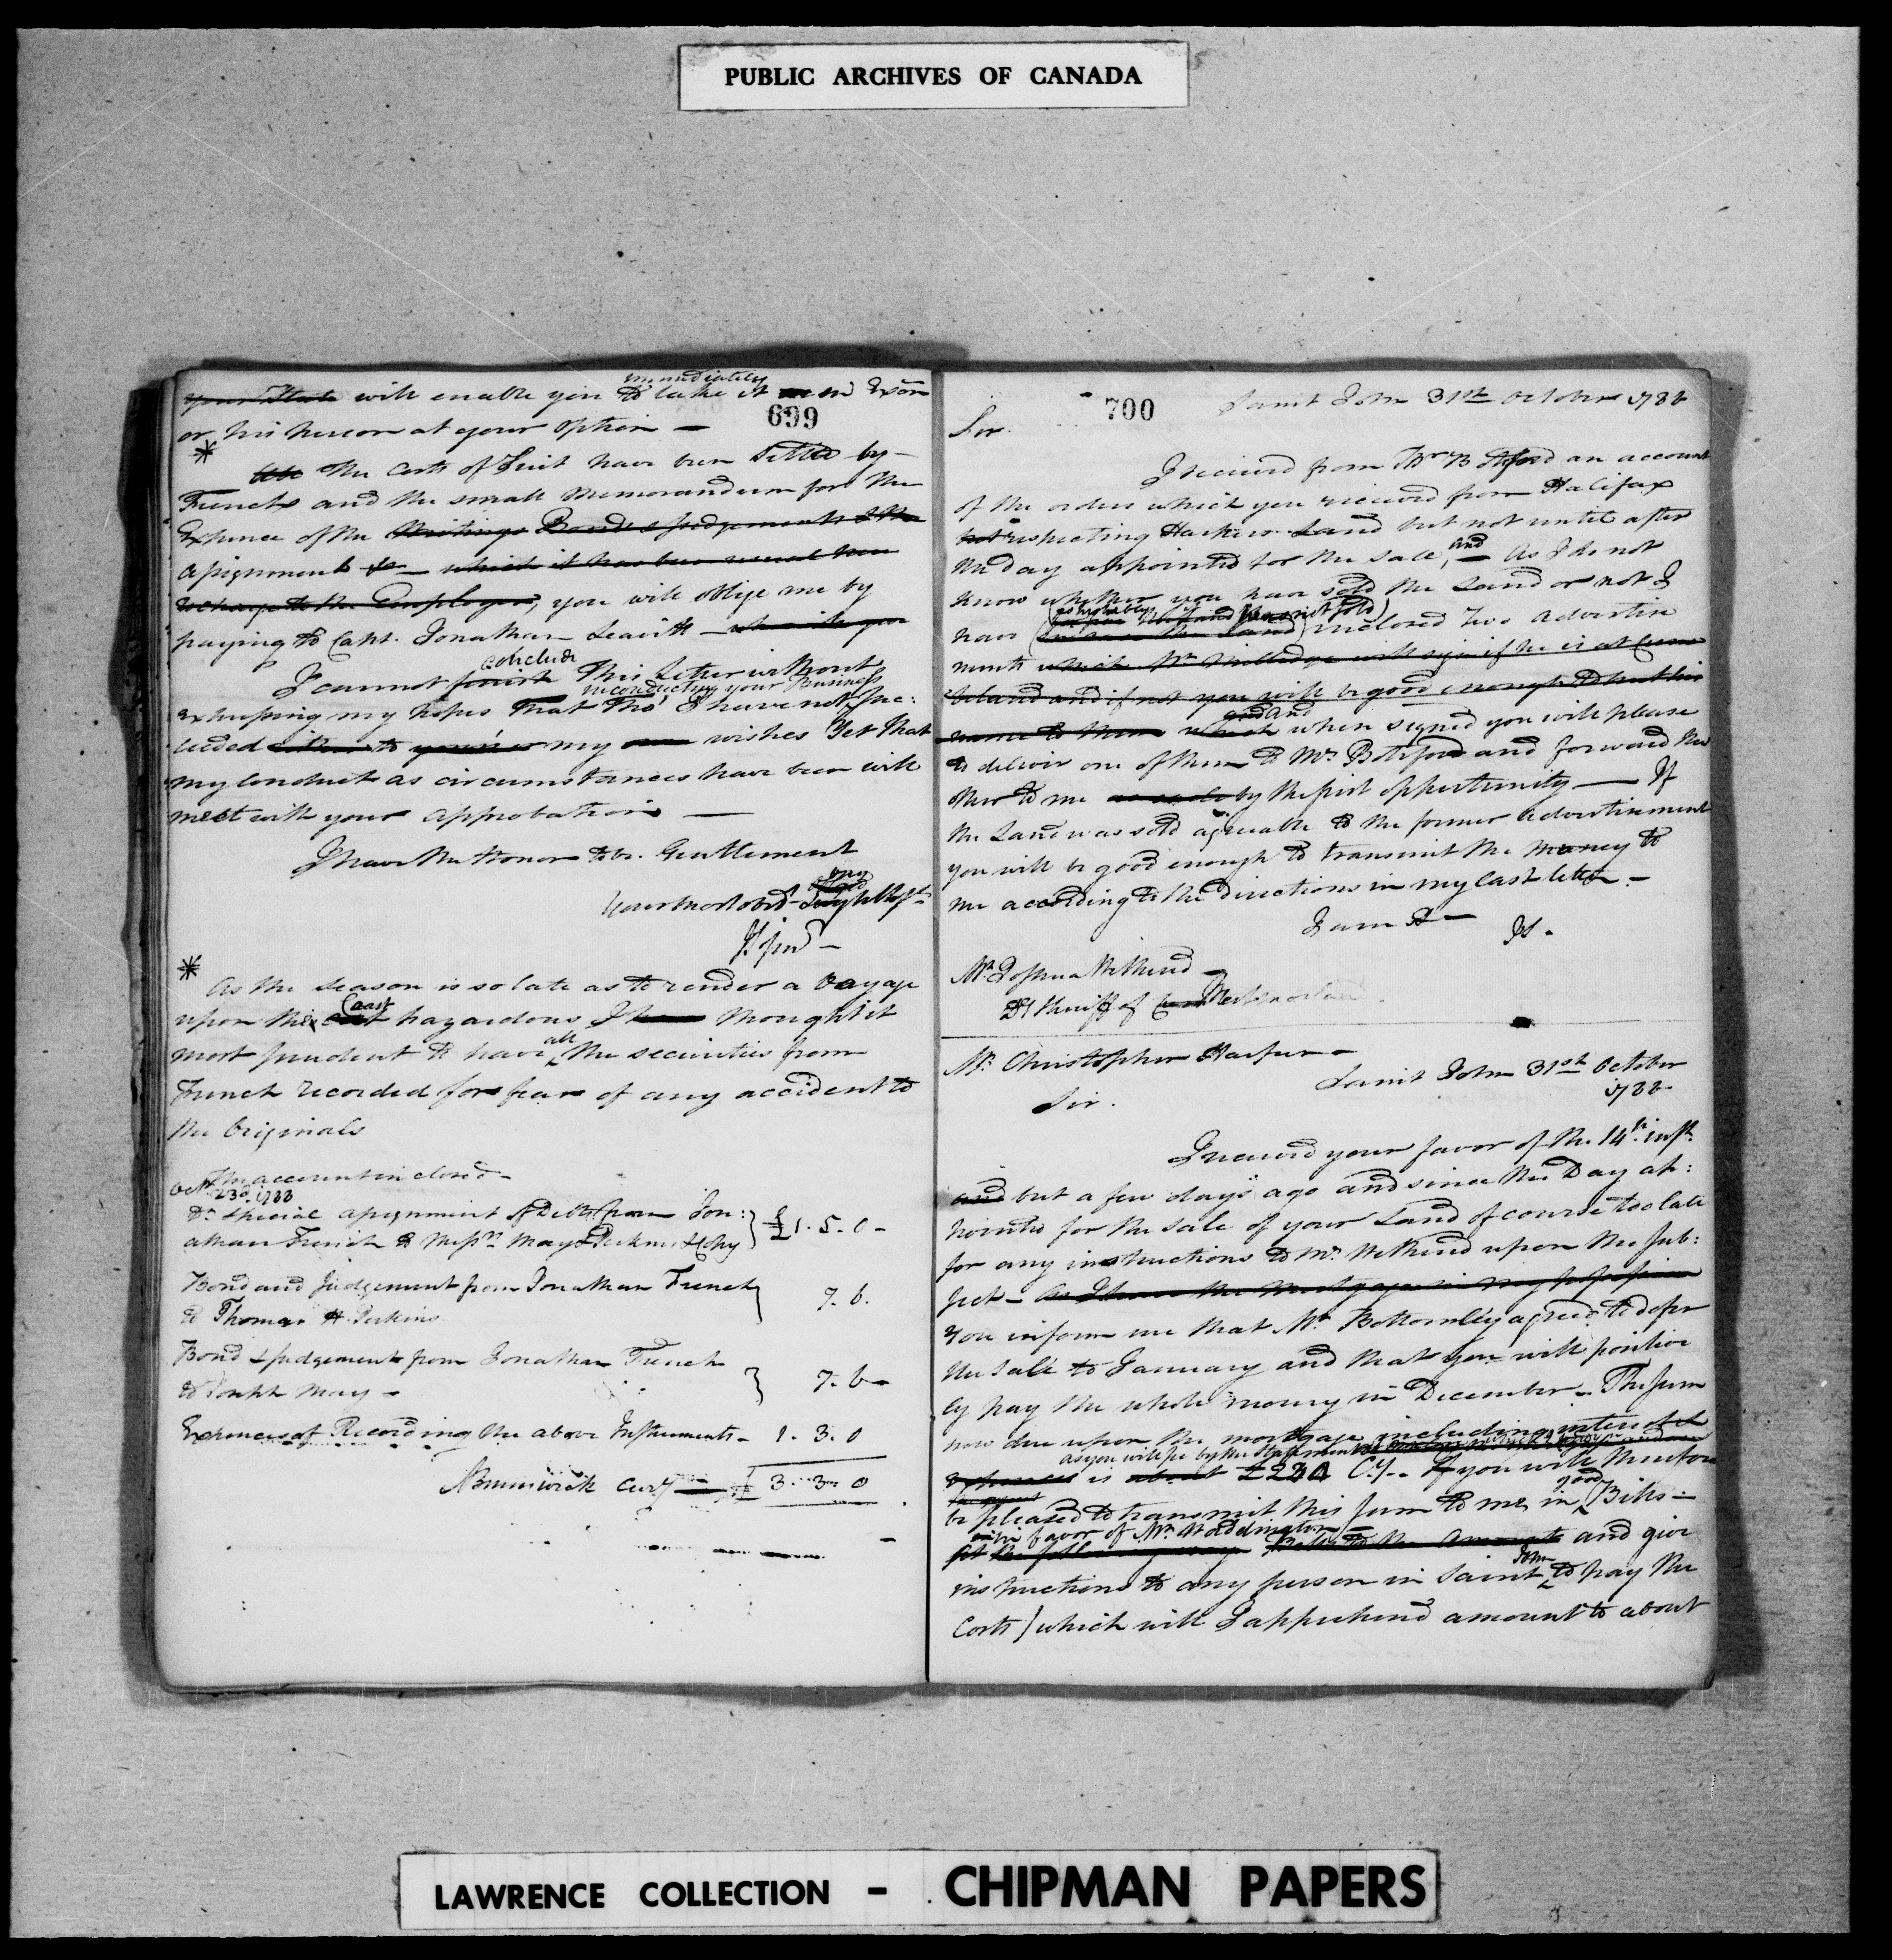 PUBLIC ARCHIVES OF CANADA
699
immediately
your State will enable you to take it in Exôn
or his person at your option —
* The Costs of Suit have been settled by
French and the small memorandum for the
Expence of the Writings Bonds & Judgements & the
assignment &c — which it has been usual here
to charge to the Employer, you will oblige me by
paying to Capt. Jonathan Leavitt —
conclude
I cannot finish this Letter without
in conducting your Business
expressing my hopes that tho' I have not suc:
ceeded to my wishes Yet that
my conduct as circumstances have been will
meet with your approbation —
I have the honor to be. Gentlemen
Your most obed.
*
As the season is so late as to render a Voyage
Coast
upon the hazardous I thought it
all
most prudent to have the securities from
French recorded for fear of any accident to
the Originals
The account inclosed —
Octr. 23d. 1788
Dr. special assignment of Debts from Jon:
athan French to Messrs. May & Perkins & Copy } £1. 5. 0 –
Bond and Judgement from Jonathan French
to Thomas H. Perkins } 7. 6.
Bond & Judgement from Jonathan French
to Joseph May – } 7. 6 –
Expences of Recording the above Instruments – 1. 3. 0
N Brunswick Curcy — £ 3. 3. 0
700
Saint John 31st. October 1788
Sir.
I received from Mr Botsford an account
of the orders which you received from Halifax
respecting Harpers Land but not until after
and
the day appointed for the sale, — As I do not
know whether you have sold the Land or not I
have inclosed Two Advertise
ments which Mr. Milledge will sign if he is at Cum
berland and if not you will be good enough to put his
and
name to them which when signed you will please
to deliver one of them to Mr. Botsford and forward the
other to me by the first opportunity — If
the Land was sold agreeable to the former advertisement
you will be good enough to transmit the money to
me according to the directions in my last letter –
I am &—
Mr. Joshua Wethered
Dy. Sheriff of Westmorland
Mr. Christopher Harper –
Saint John 31st. October
1788
Sir.
I received your favor of the 14th. inst.
and but a few days ago and since the Day ap:
pointed for the sale of your Land of course too late
for any instructions to Mr. Wethered upon the sub:
ject – As I have the Mortgage in my possession
You inform me that Mr. Bottomley agreed to defer
the sale to January and that you will positive
ly pay the whole money in December – The sum
now due upon the mortgage including interest &
as you will see by the statement
expences is about £ Cy. – If you will therefore
good
be pleased to transmit this sum to me, in Bills –
in favor of Mr. Waddington
Bills to the amount and give
John
instructions to any person in Saint to pay the
Costs) which will I apprehend amount to about
LAWRENCE COLLECTION - CHIPMAN PAPERS